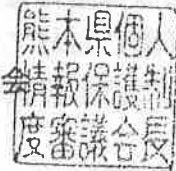 熊本県個人
会情報保護制
度審議会長